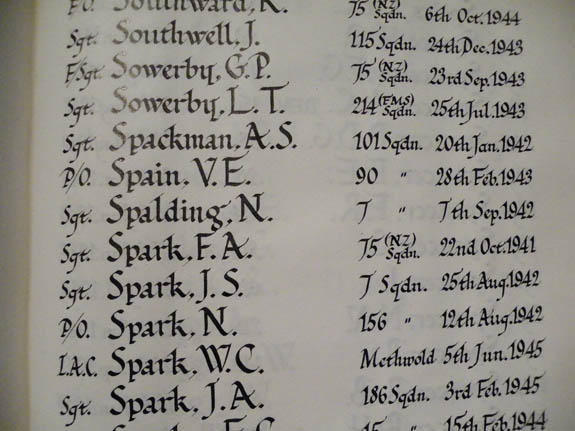 F/O. Southward, R. 75 (NZ) Sqdn. 6th Oct. 1944
Sgt. Southwell, J. 115 Sqdn. 24th Dec. 1943
F.Sgt. Sowerby, G.P. 75 (NZ) Sqdn. 23rd Sep. 1943
Sgt. Sowerby, L.T. 214 (FMS) Sqdn. 25th Jul. 1943
Sgt. Spackman, A.S. 101 Sqdn. 20th Jan. 1942
P/O. Spain, V.E. 90 " 28th Feb. 1943
Sgt. Spalding, N. 7 " 7th Sep. 1942
Sgt. Spark, F.A. 75 (NZ) Sqdn. 22nd Oct. 1941
Sgt. Spark, J.S. 7 Sqdn. 25th Aug. 1942
P/O. Spark, N. 156 " 12th Aug. 1942
L.A.C. Spark, W.C. Methwold 5th Jun. 1945
Sgt. Spark, J.A. 186 Sqdn. 3rd Feb. 1945
15 " 15th Feb. 1944